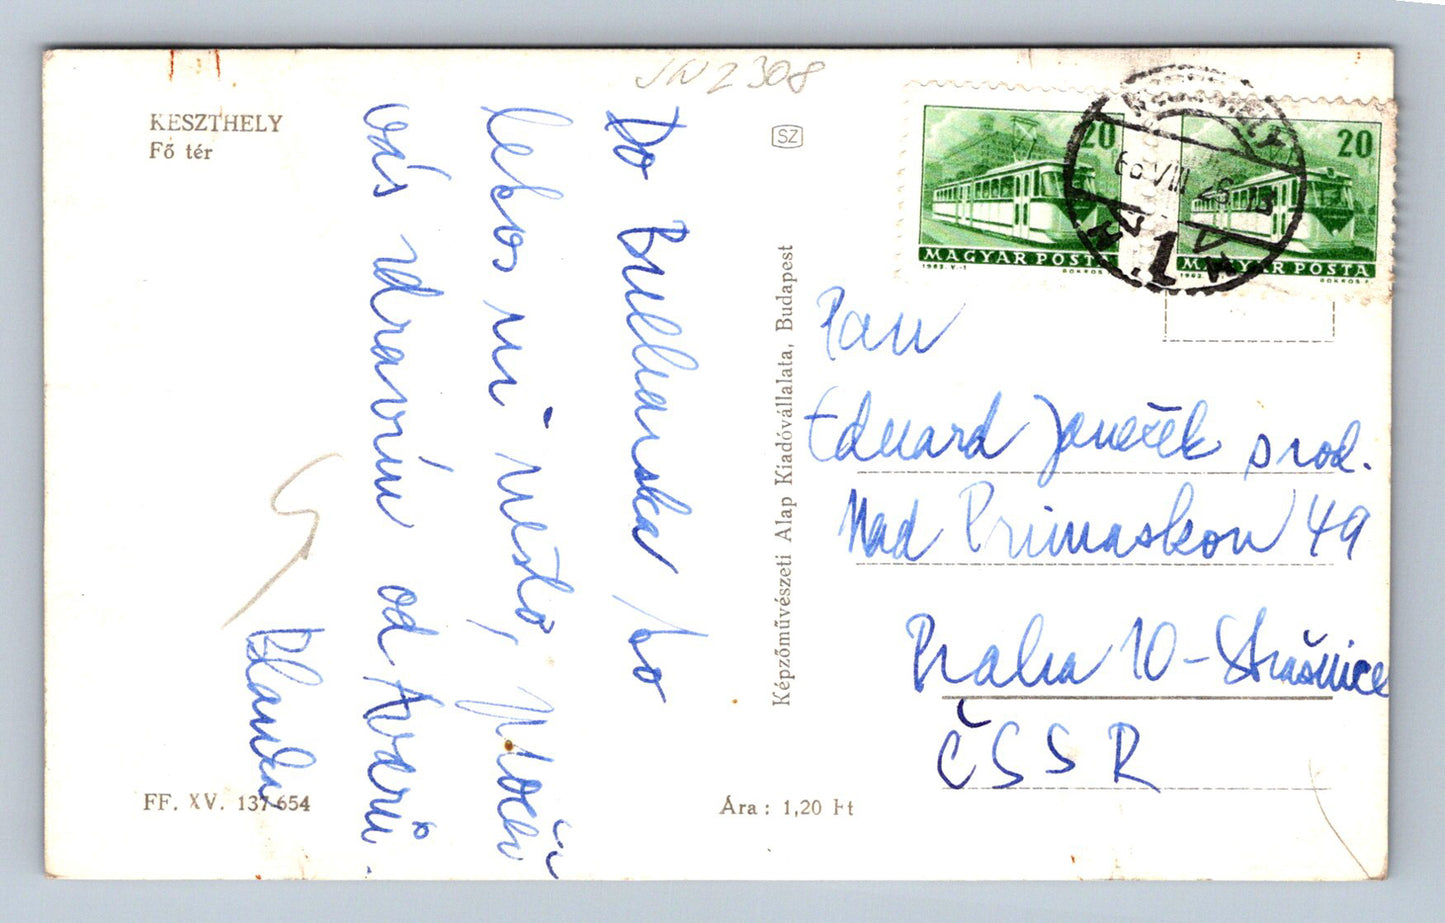 JN2308
KESZTHELY
Fő tér
SZ
20
MAGYAR POSTA
1963. V-1
BOKROS F.
20
MAGYAR POSTA
1963
BOKROS F.
KESZTHELY
66 VIII 26
1
Do Bulharska to
letos
město,
vás zdravím od Avarů.
Blanka
Képzőművészeti Alap Kiadóvállalata, Budapest
Pan
Eduard Janeček prod.
Nad Primaskou 49
Praha 10 - Strašnice
ČSSR
FF. XV. 137-654
Ára: 1,20 Ft